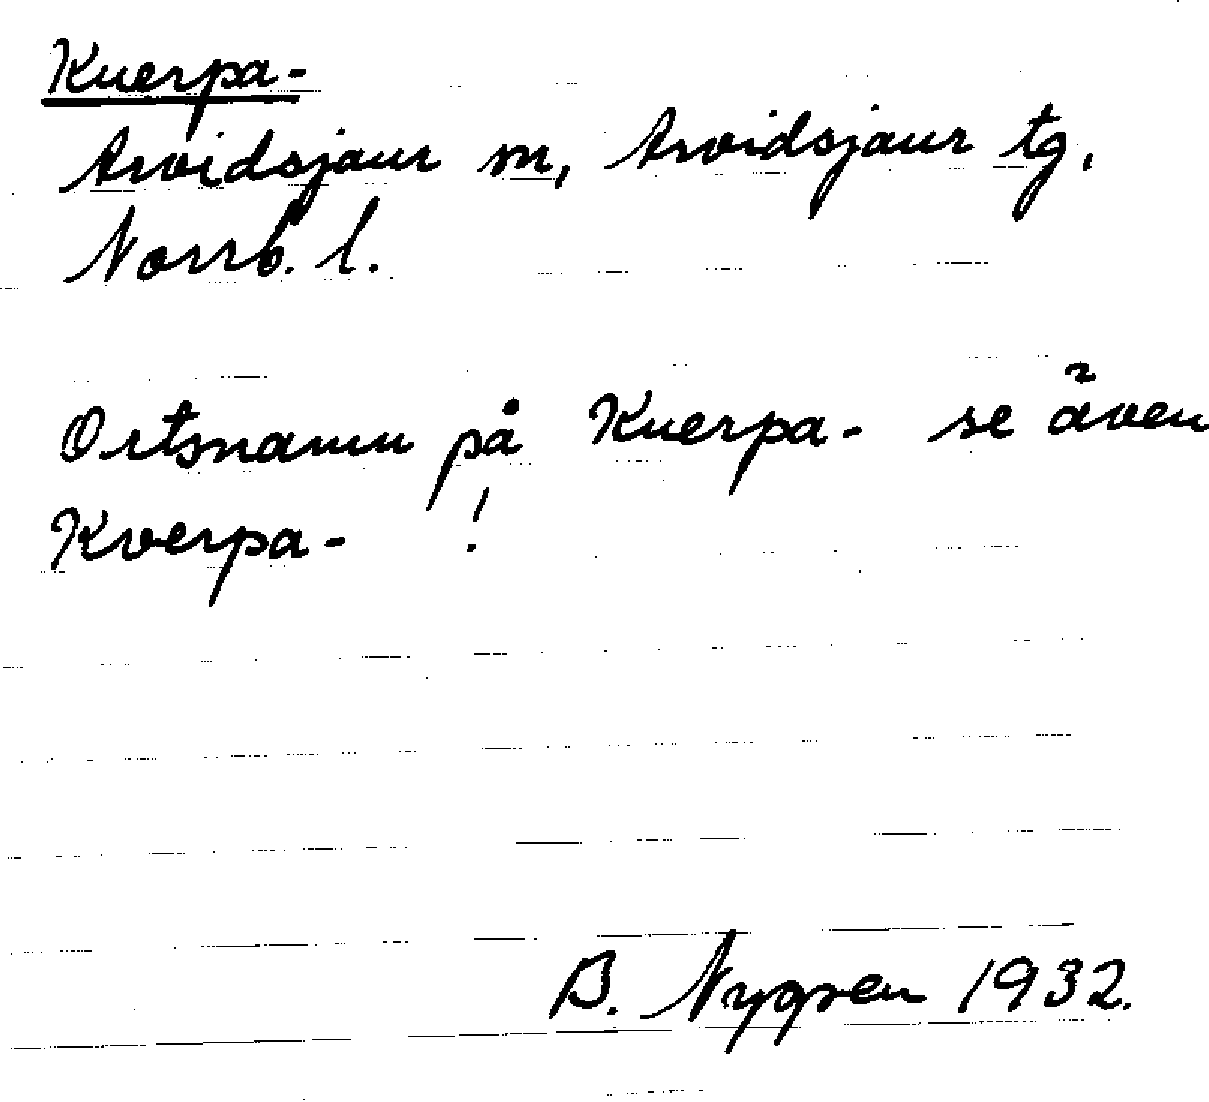 Kuerpa-
Arvidsjaur m, Arvidsjaur tg,
Norrb. l.
Ortsnamn på Kuerpa- se även
Kverpa- !
B. Nygren 1932.